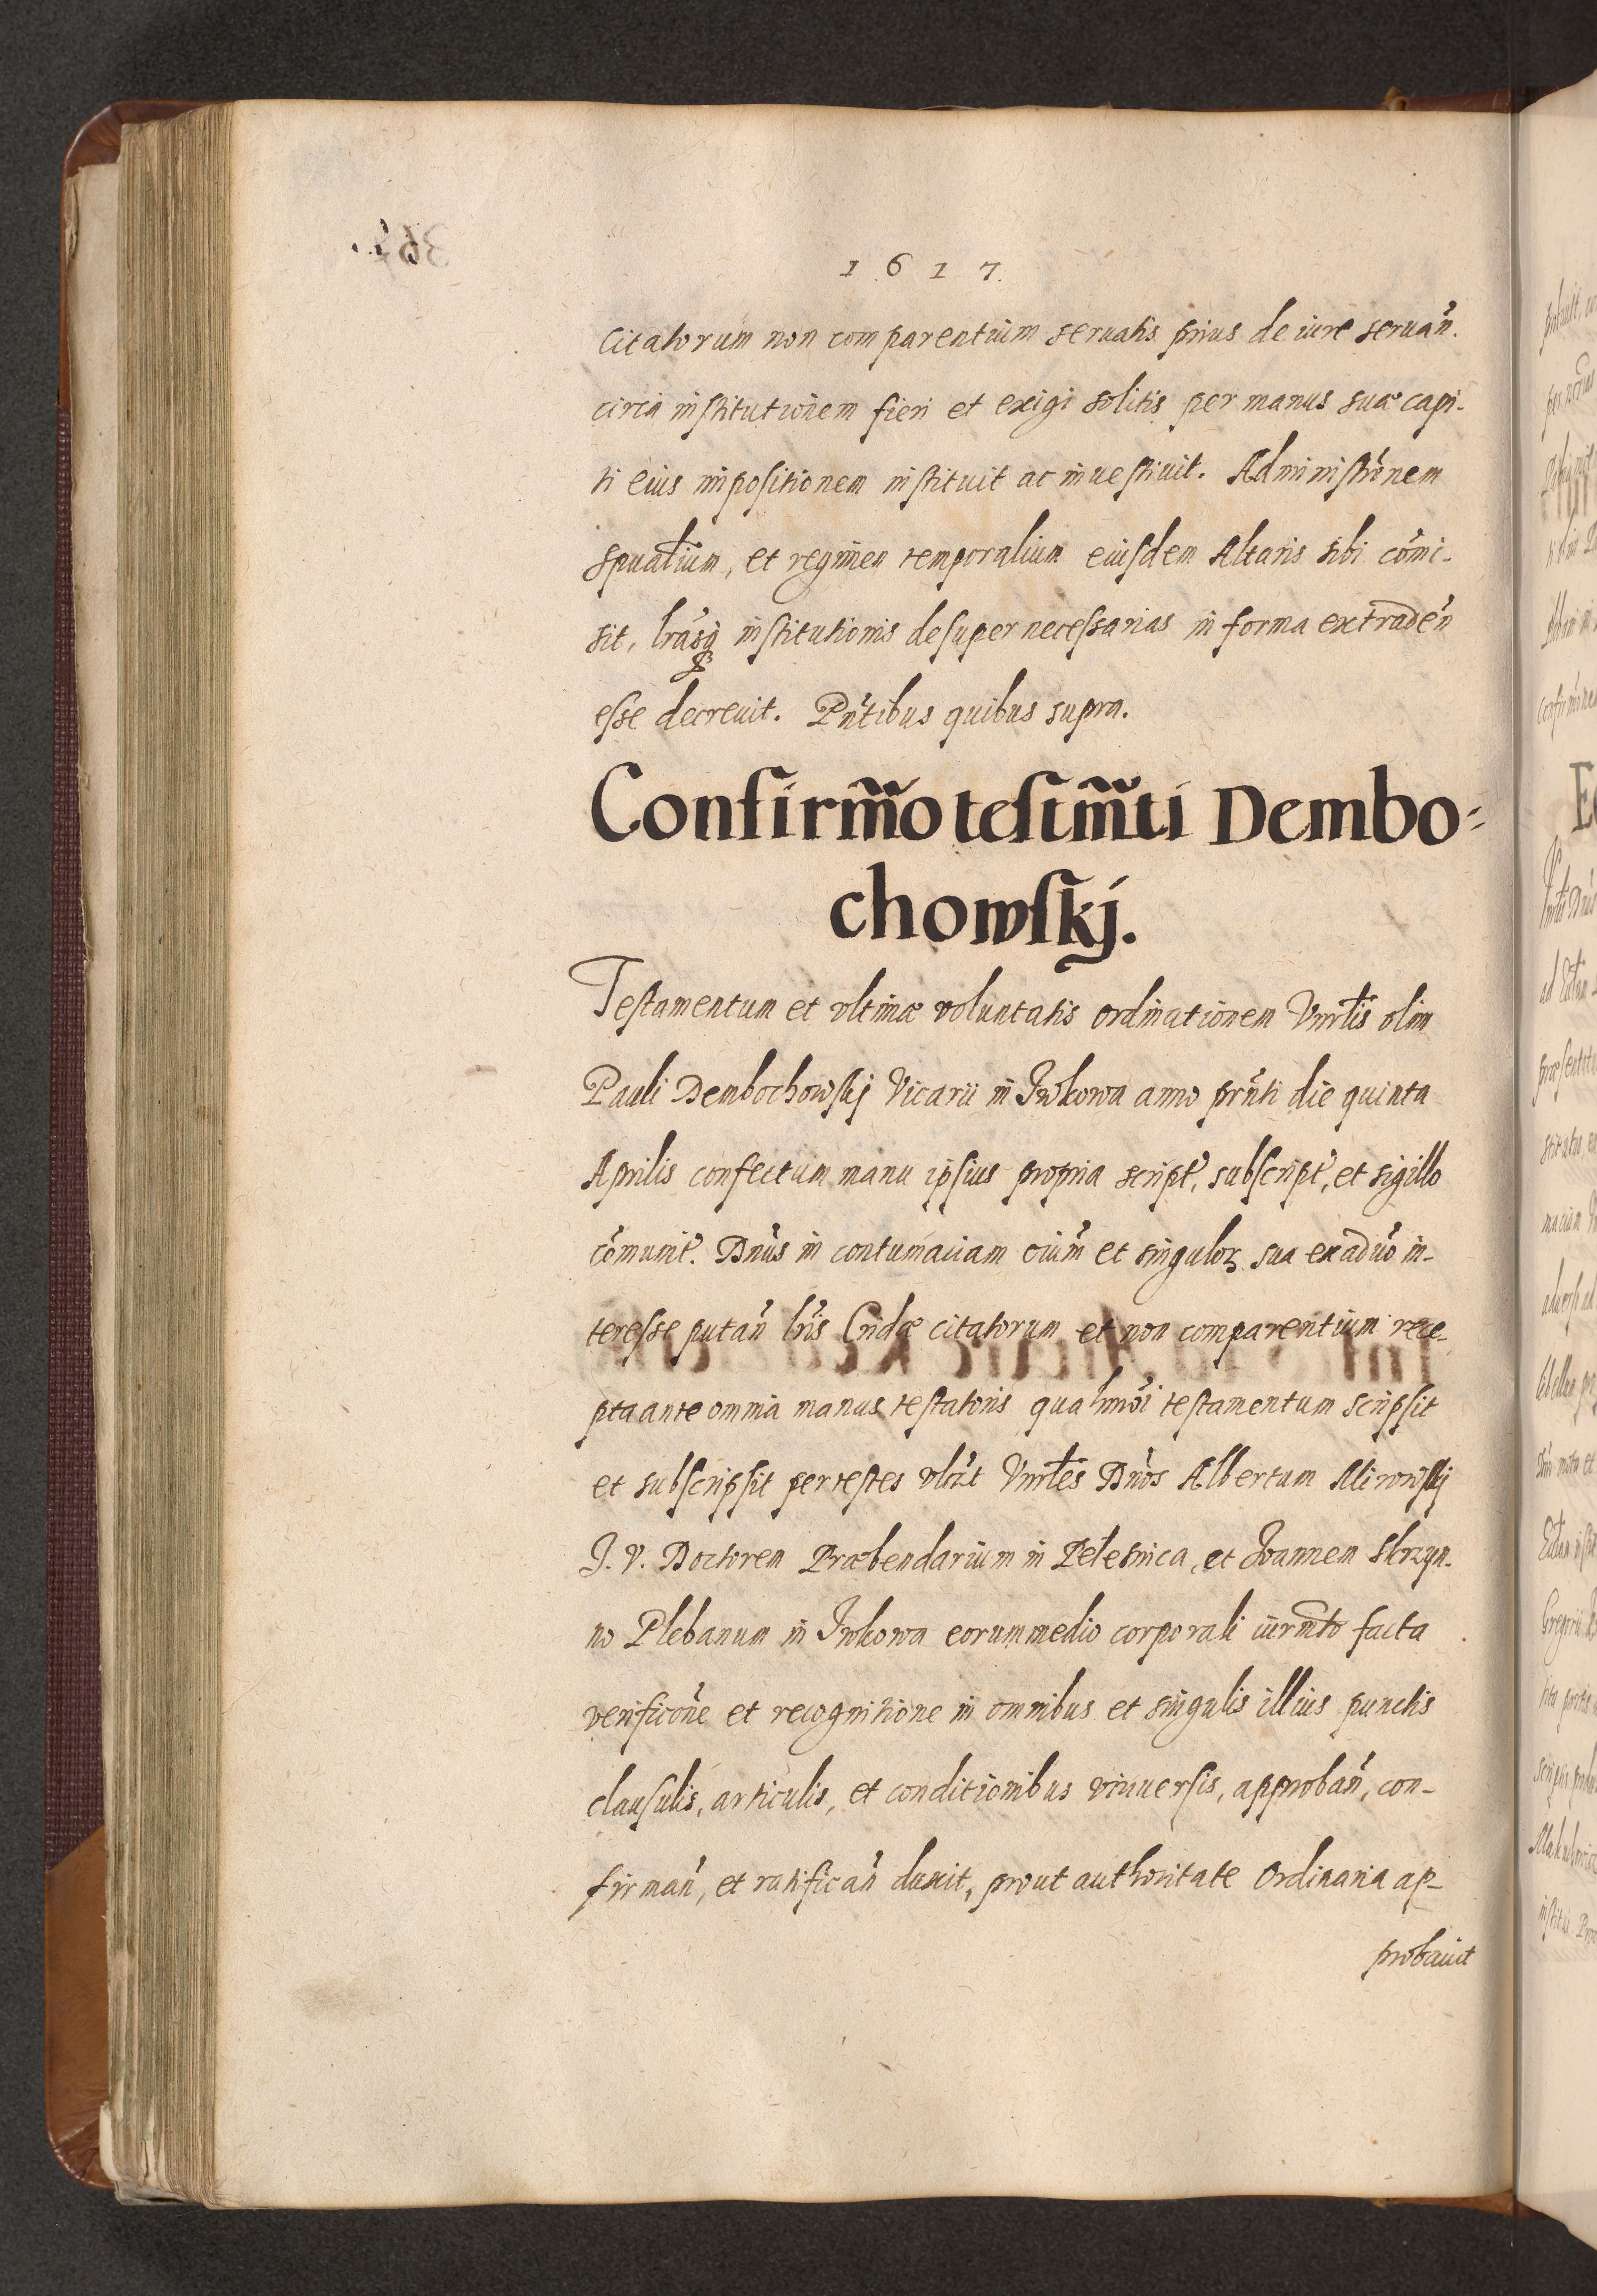 1617
citatorum non comparentium seruatis prius de iure seruañ.
circa institutionem fieri et exigi solitis per manus suæ capi-
ti eius impositionem instituit ac inuestiuit. Administrõnem
spualium, et regimen temporalium eiusdem Altaris sibi cõmi-
sit, lrãsq institutionis desuper necessarias in forma extradeñ
esse decreuit. Pñtibus quibus supra.
Confirm̃o testm̃ti Dembo-
chowskj.
Testamentum et vltimæ voluntatis ordinationem Vnrlis olim
Pauli Dembochowskj Vicarii in Iwkowa anno prñti die quinta
Aprilis confectum manu ipsius propria script', subscript', et sigillo
cõmunit'. Dñus in contumaciam oiũm et singuloꝝ sua ex aduõ in-
teresse putañ lris Cridæ citatorum et non comparentium rece-
pta ante omnia manus testatoris qua hmõi testamentum scripsit
et subscripsit per testes vlãt Vnrles Dños Albertum
I. V. Doctorem Præbendarium in Petesnica, et Ioannem Skrzyn-
no Plebanum in Iwkowa eorum medio corporali iurm̃to facta
verificõne et recognitione in omnibus et singulis illius punctis
clausulis, articulis, et conditionibus vniuersis, approbañ, con-
firmañ, et ratificañ duxit, prout authoritate Ordinaria ap-
probauit